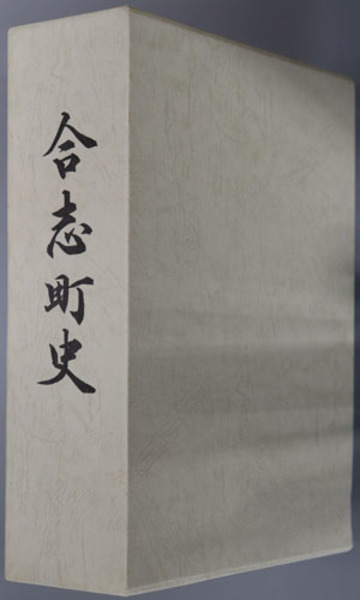 合志町史